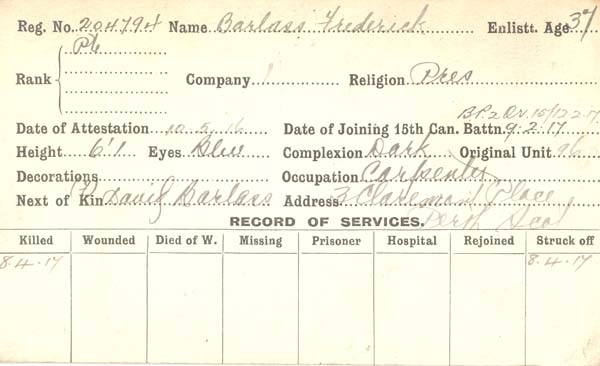 Reg. No. 204794 Name Barlass Frederick Enlistt. Age 37
Pte
Rank Company 1 Religion Pres
B.P.2 Or. 15/12.2.17
Date of Attestation 10.5.16 Date of Joining 15th Can. Battn. 9.2.17
Height 6'1 Eyes Blue Complexion Dark Original Unit 96
Decorations Occupation Carpenter
Next of Kin David Barlass Address 3 Claremont Place
Perth Scot
RECORD OF SERVICES.
Killed Wounded Died of W. Missing Prisoner Hospital Rejoined Struck off
8.4.17 8.4.17